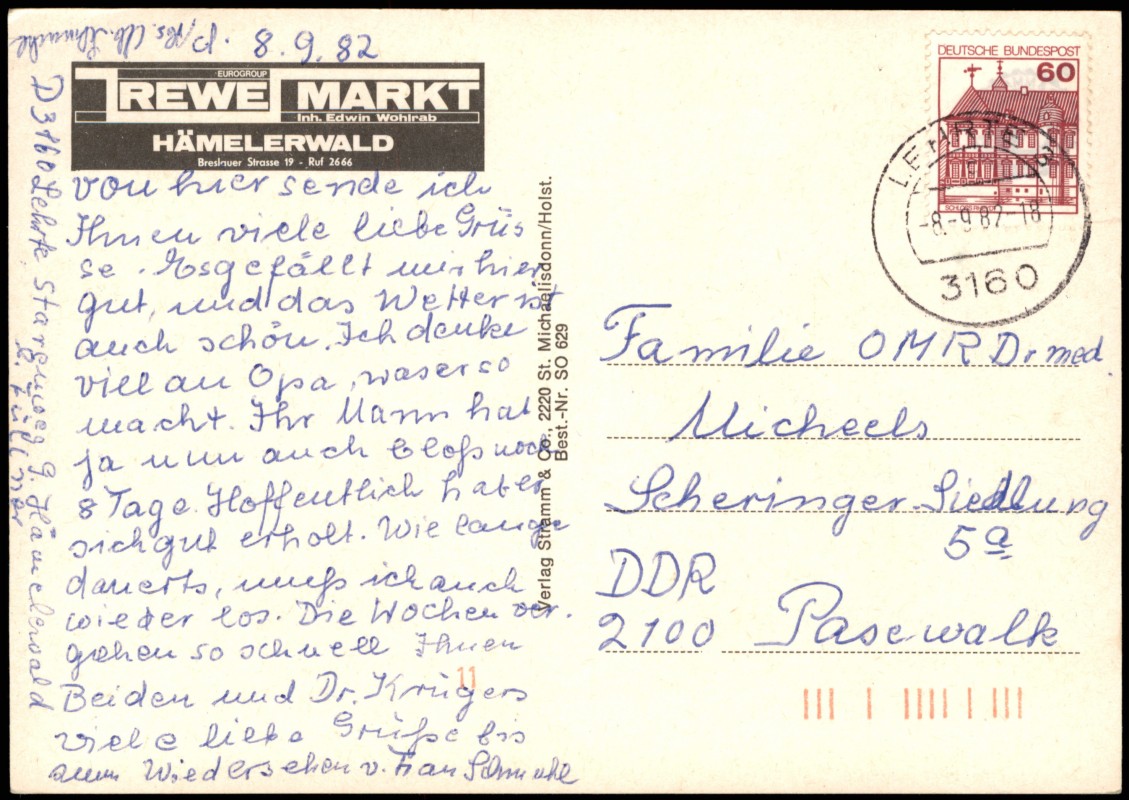 8.9.82
EUROGROUP
REWE MARKT
Inh. Edwin Wohlrab
HÄMELERWALD
Breslauer Strasse 19 - Ruf 2666
von hier sende ich
Ihnen viele liebe Grüs
se. Es gefällt mir hier
gut, und das Wetter ist
auch schön. Ich denke
viel an Opa, was er so
macht. Ihr Mann hat
ja nun auch bloß noch
8 Tage. Hoffentlich hat er
sich gut erholt. Wie lange
dauerts, muß ich auch
wieder los. Die Wochen ver.
gehen so schnell Ihnen
Beiden und Dr. Krügers
viele liebe Grüße bis
zum Wiedersehen v. Frau Schmuhl
D 3160 Lehrte Starenweg 9. Hämelerwald
Verlag Stramm & Co., 2220 St. Michaelisdonn/Holst.
Best.-Nr. SO 629
DEUTSCHE BUNDESPOST
60
LEHRTE
-8.-9.82-18
3160
Familie OMR Dr med.
Micheels
Scheringer-Siedlung
5a
DDR
2100 Pasewalk
11